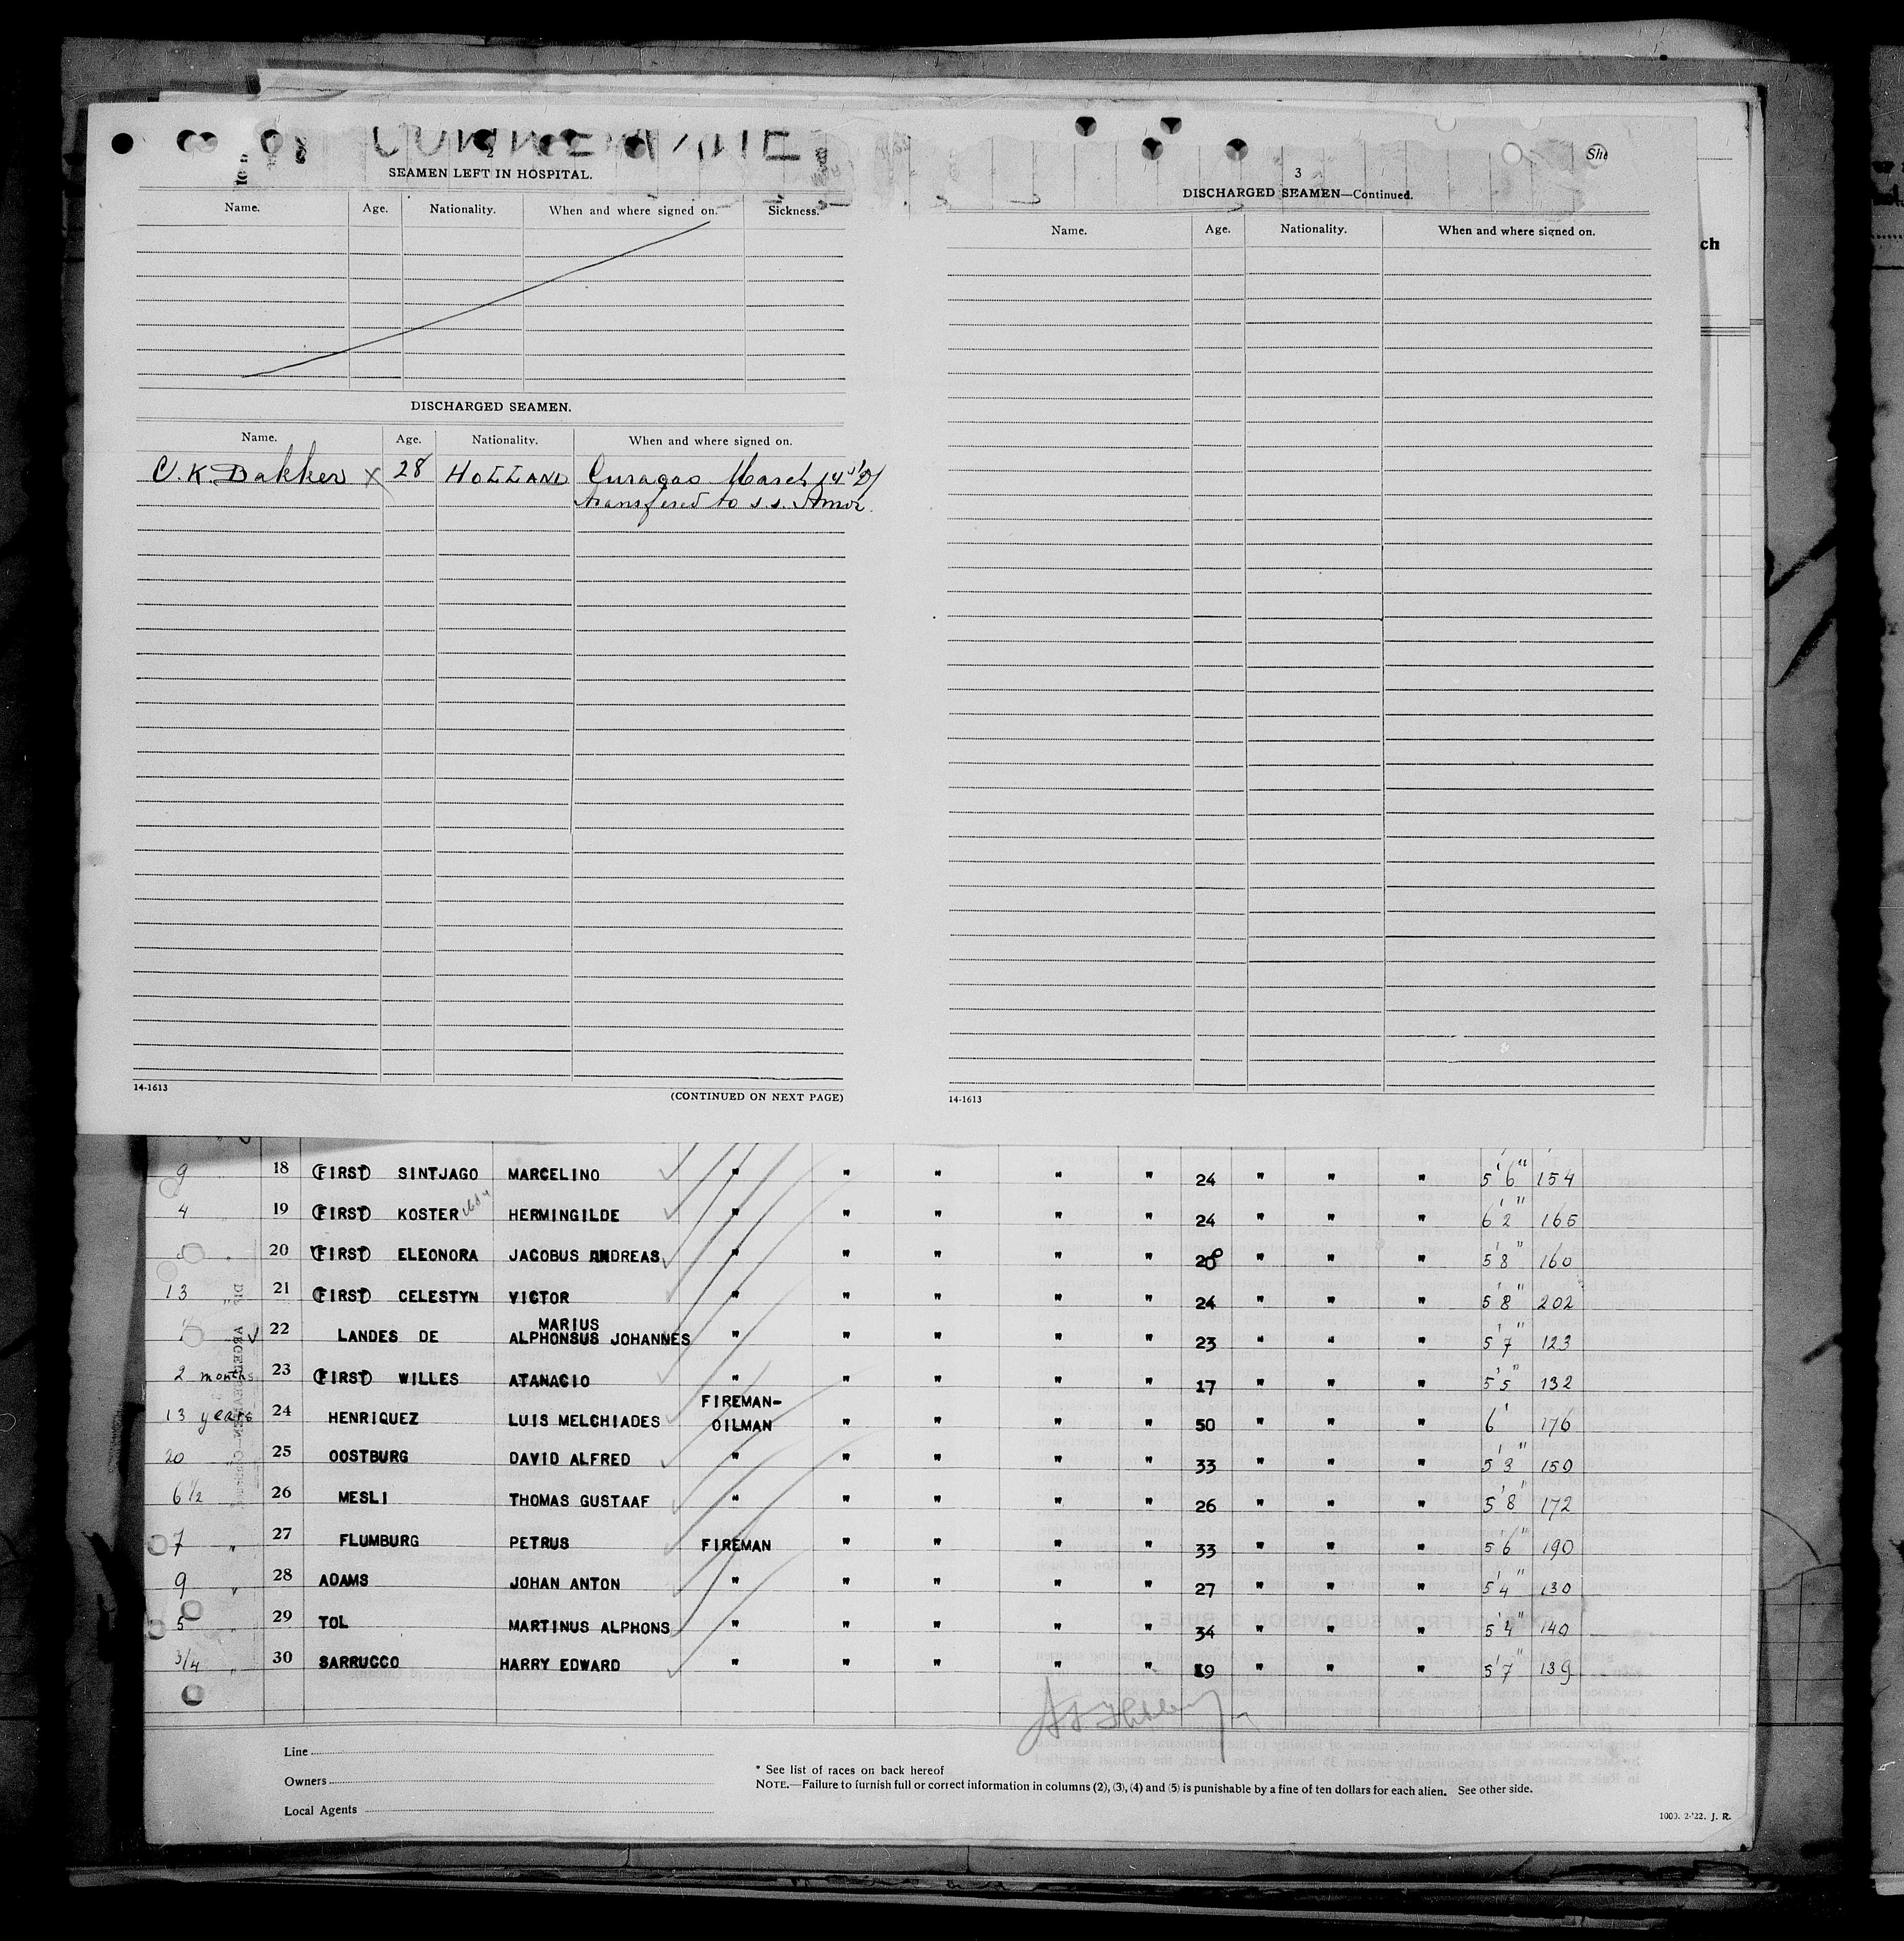 COMMEWIJNE
2
SEAMEN LEFT IN HOSPITAL.
Name. Age. Nationality. When and where signed on. Sickness.
DISCHARGED SEAMEN.
Name. Age. Nationality. When and where signed on.
Dakker X 28 HOLLAND Curaçao March 14
transfered to s.s. Amor
14-1613
(CONTINUED ON NEXT PAGE)
3
DISCHARGED SEAMEN—Continued.
Name. Age. Nationality. When and where signed on.
14-1613
She
ch
9 18 FIRST SINTJAGO MARCELINO " " " " " 24 " " " 5'6" 154
4 19 FIRST KOSTER HERMINGILDE " " " " " 24 " " " 6'2" 165
20 FIRST ELEONORA JACOBUS ANDREAS " " " " " 28 " " " 5'8" 160
13 " 21 FIRST CELESTYN VICTOR " " " " " 24 " " " 5'8" 202
22 LANDES DE MARIUS
ALPHONSUS JOHANNES " " " " " 23 " " " 5'7" 123
2 months 23 FIRST WILLES ATANACIO " " " " " 17 " " " 5'5" 132
13 years 24 HENRIQUEZ LUIS MELCHIADES FIREMAN-
OILMAN " " " " 50 " " " 6' 176
20 " 25 OOSTBURG DAVID ALFRED " " " " " 33 " " " 5'3" 150
6 1/2 26 MESLI THOMAS GUSTAAF " " " " " 26 " " " 5'8" 172
7 " 27 FLUMBURG PETRUS FIREMAN " " " " 33 " " " 5'6" 190
9 " 28 ADAMS JOHAN ANTON " " " " " 27 " " " 5'4" 130
5 " 29 TOL MARTINUS ALPHONS " " " " " 34 " " " 5'4" 140
3/4 " 30 SARRUCCO HARRY EDWARD " " " " " 19 " " " 5'7" 139
Line
Owners
Local Agents
* See list of races on back hereof
NOTE.—Failure to furnish full or correct information in columns (2), (3), (4) and (5) is punishable by a fine of ten dollars for each alien. See other side.
1000. 2-'22. J. R.